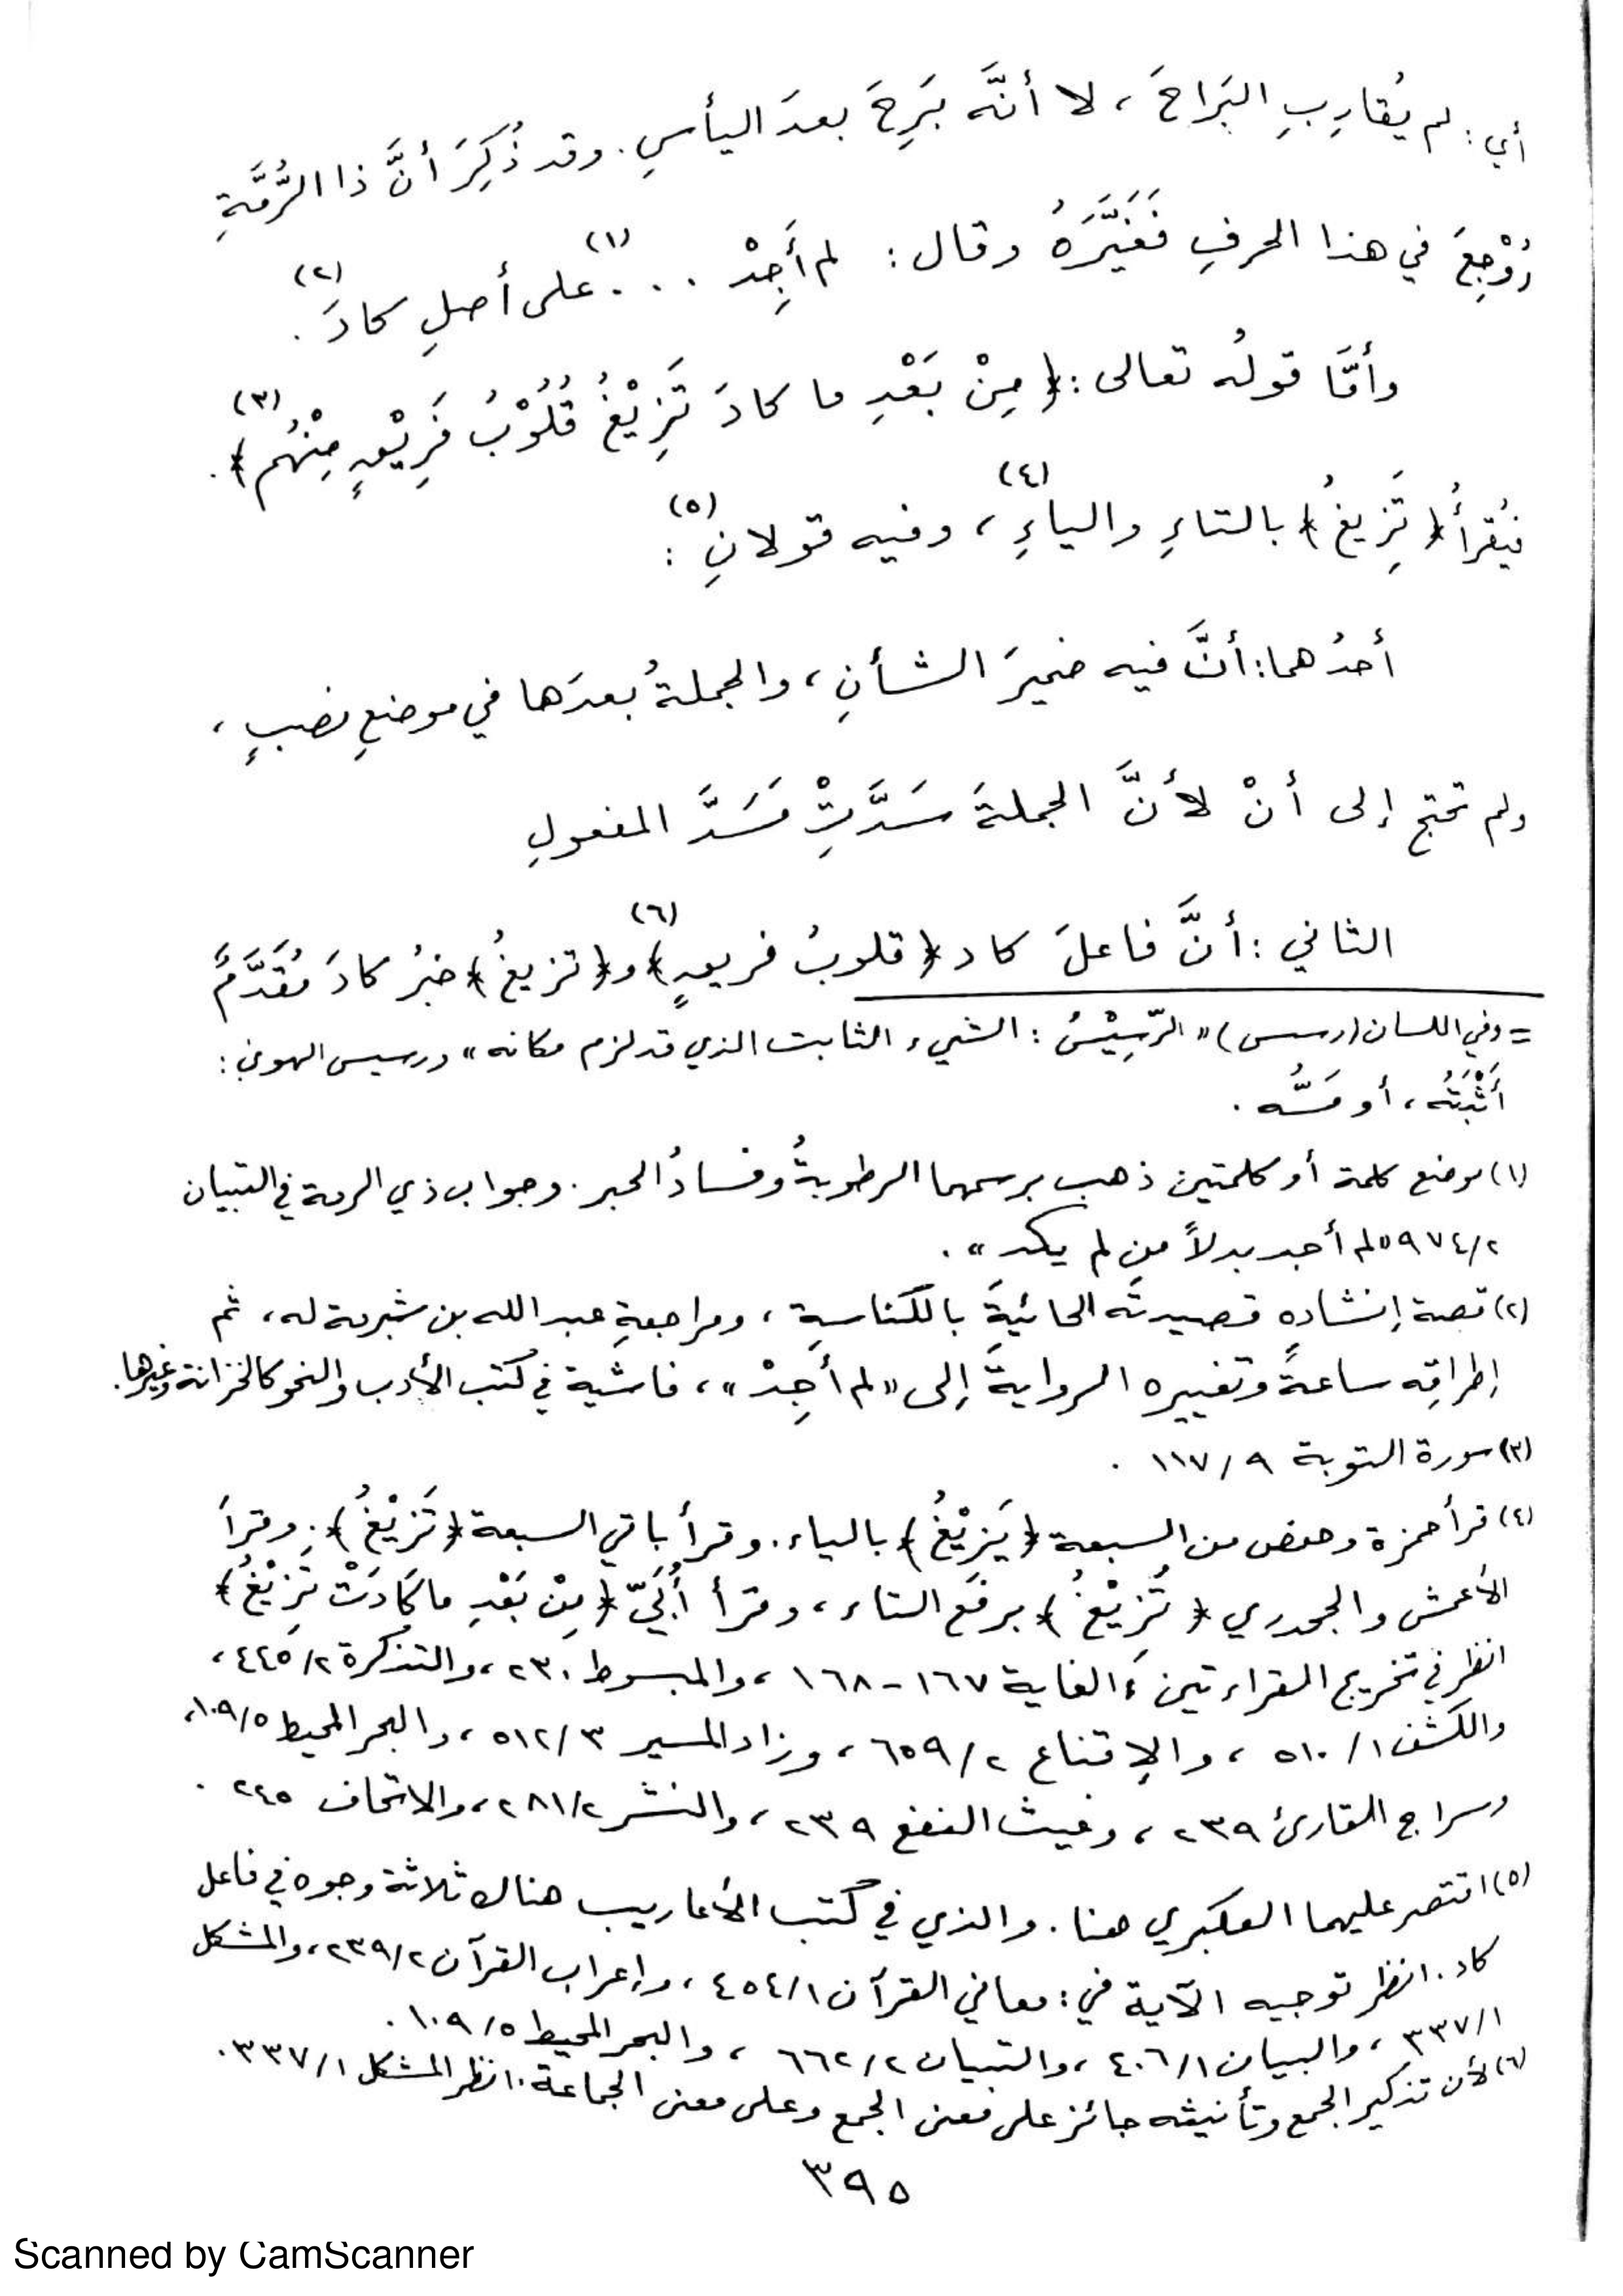 أي: لم يُقارِبِ البَرَاحَ، لا أنَّه بَرِحَ بعدَ اليأسِ. وقد ذُكِرَ أنَّ ذا الرُّمَّةِ
رُوْجِعَ في هذا الحرفِ فَغَيَّرَهُ وقال: لم أَجِدْ . . . (١) على أصلِ كادَ (٢).
وأمَّا قولُه تعالى: ﴿مِنْ بَعْدِ ما كادَ تَزِيْغُ قُلُوْبُ فَرِيْقٍ مِنْهُم﴾ (٣).
فيُقرأُ ﴿تَزِيغُ﴾ بالتاءِ والياءِ (٤)، وفيه قولانِ (٥):
أحدُهما: أنَّ فيه ضميرَ الشأنِ، والجملةُ بعدَها في موضعِ نصبٍ،
ولم تحتج إلى أنْ لأنَّ الجملةَ سَدَّتْ مَسَدَّ المفعولِ
الثاني: أنَّ فاعلَ كاد ﴿قلوبُ فريقٍ﴾ (٦) و﴿تزيغُ﴾ خبرُ كادَ مُقَدَّمٌ
= وفي اللسان (رسس) «الرّسِيْسُ: الشيء الثابت الذي قد لزم مكانه» ورسيس الهوى:
أَثْبَتُه، أو مَسُّه.
(١) موضع كلمة أو كلمتين ذهب برسمهما الرطوبةُ وفسادُ الحبر. وجواب ذي الرمة في التبيان
٩٧٤/٢ «لم أجد بدلاً من لم يكد».
(٢) قصة إنشادِهِ قصيدتَه الحائيةَ بالكناسةِ، ومراجعةِ عبد الله بن شبرمة له، ثم
إطراقِه ساعةً وتغييره الروايةَ إلى «لم أجِدْ»، فاشية في كتب الأدب والنحو كالخزانة وغيرها.
(٣) سورة التوبة ١١٧/٩.
(٤) قرأ حمزة وحفص من السبعة ﴿يَزِيْغُ﴾ بالياء. وقرأ باقي السبعة ﴿تَزِيْغُ﴾. وقرأ
الأعمش والجحدري ﴿تُزِيْغُ﴾ برفع التاء، وقرأ أُبَيّ ﴿مِنْ بَعْدِ ما كَادَتْ تَزِيْغُ﴾
انظر في تخريج القراءتين: الغاية ١٦٧-١٦٨، والمبسوط ٢٣٠، والتذكرة ٤٤٥/٢،
والكشف ٥١٠/١، والإقناع ٦٥٩/٢، وزاد المسير ٥١٢/٣، والبحر المحيط ١٠٩/٥،
وسراج القارئ ٢٣٩، وغيث النفع ٢٣٩، والنشر ٢٨١/٢، والاتحاف ٢٤٥.
(٥) اقتصر عليهما العكبري هنا. والذي في كتب الأعاريب هناك ثلاثة وجوه في فاعل
كاد. انظر توجيه الآية في: معاني القرآن ٤٥٤/١، وإعراب القرآن ٢٣٩/٢، والمشكل
٣٣٧/١، والبيان ٤٠٦/١، والتبيان ٦٦٢/٢، والبحر المحيط ١٠٩/٥.
(٦) لأن تذكير الجمع وتأنيثه جائز على معنى الجمع وعلى معنى الجماعة. انظر المشكل ٣٣٧/١.
٣٩٥
Scanned by CamScanner